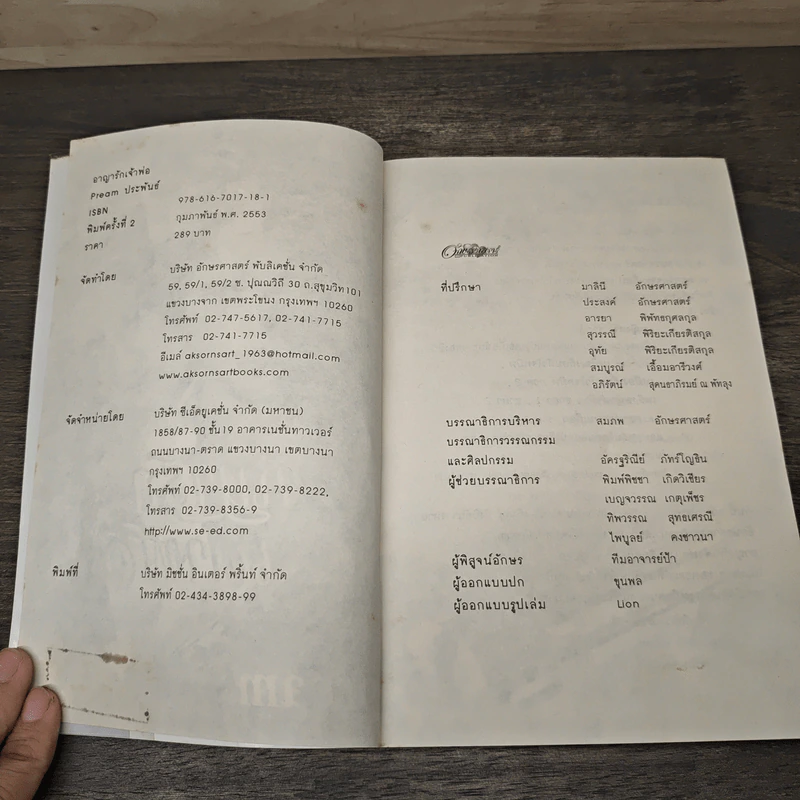 อาญารักเจ้าพ่อ
Pream ประพันธ์
ISBN 978-616-7017-18-1
พิมพ์ครั้งที่ 2 กุมภาพันธ์ พ.ศ. 2553
ราคา 289 บาท
จัดทำโดย บริษัท อักษรศาสตร์ พับลิเคชั่น จำกัด
59, 59/1, 59/2 ซ. ปุณณวิถี 30 ถ.สุขุมวิท101
แขวงบางจาก เขตพระโขนง กรุงเทพฯ 10260
โทรศัพท์ 02-747-5617, 02-741-7715
โทรสาร 02-741-7715
อีเมล์ aksornsart_1963@hotmail.com
www.aksornsartbooks.com
จัดจำหน่ายโดย บริษัท ซีเอ็ดยูเคชั่น จำกัด (มหาชน)
1858/87-90 ชั้น19 อาคารเนชั่นทาวเวอร์
ถนนบางนา-ตราด แขวงบางนา เขตบางนา
กรุงเทพฯ 10260
โทรศัพท์ 02-739-8000, 02-739-8222,
โทรสาร 02-739-8356-9
http://www.se-ed.com
พิมพ์ที่ บริษัท มิชชั่น อินเตอร์ พริ้นท์ จำกัด
โทรศัพท์ 02-434-3898-99
ที่ปรึกษา มาลินี อักษรศาสตร์
ประสงค์ อักษรศาสตร์
อารยา พิพัทธกุศลกุล
สุวรรณี พิริยะเกียรติสกุล
อุทัย พิริยะเกียรติสกุล
สมบูรณ์ เอื้อมอารีวงศ์
อภิรัตน์ สุคนธาภิรมย์ ณ พัทลุง
บรรณาธิการบริหาร สมภพ อักษรศาสตร์
บรรณาธิการวรรณกรรม
และศิลปกรรม อัครฐริณีย์ ภัทร์โญธิน
ผู้ช่วยบรรณาธิการ พิมพ์พิชชา เกิดวิเชียร
เบญจวรรณ เกตุเพ็ชร
ทิพวรรณ สุทธเศรณี
ไพบูลย์ คงชาวนา
ผู้พิสูจน์อักษร ทีมอาจารย์ป้า
ผู้ออกแบบปก ขุนพล
ผู้ออกแบบรูปเล่ม Lion